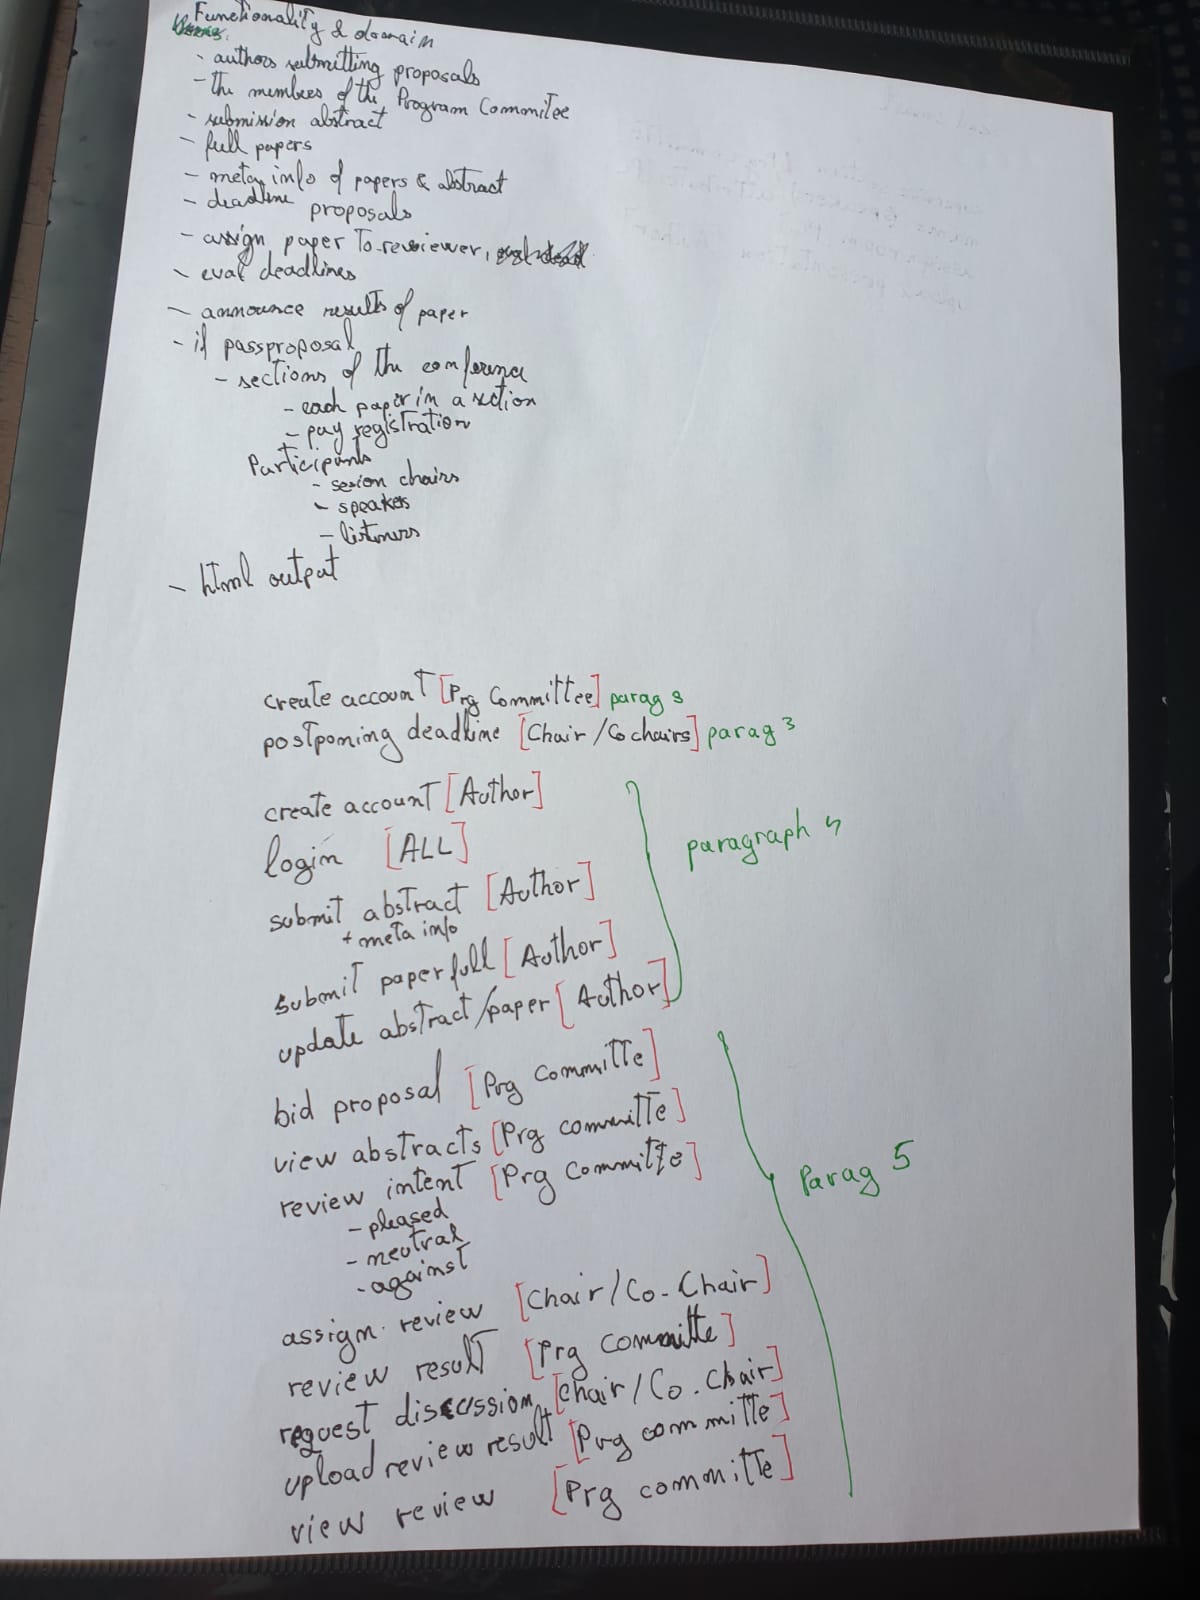 Functionality & domain
- authors submitting proposals
- the membees of the Program Commitee
- submission abstract
- full papers
- meta info of papers & abstract
- deadline proposals
- assign paper To reviewer,
- eval deadlines
- announce results of paper
- if pass proposal
- sections of the conference
- each paper in a section
- pay registration
Participants
- session chairs
- speakers
- listeners
- html output
create account [Prg Committee] parag 3
postponing deadline [Chair/Co chairs] parag 3
create account [Author]
login [ALL]
paragraph 4
submit abstract [Author]
+ meta info
submit paper full [Author]
update abstract/paper [Author]
bid proposal [Prg Committe]
view abstracts [Prg committe]
review intent [Prg Committe]
Parag 5
- pleased
- neutral
- against
assign review [Chair/Co-Chair]
review result [Prg committe]
request discussion [Chair/Co-Chair]
upload review result [Prg committe]
view review [Prg committe]